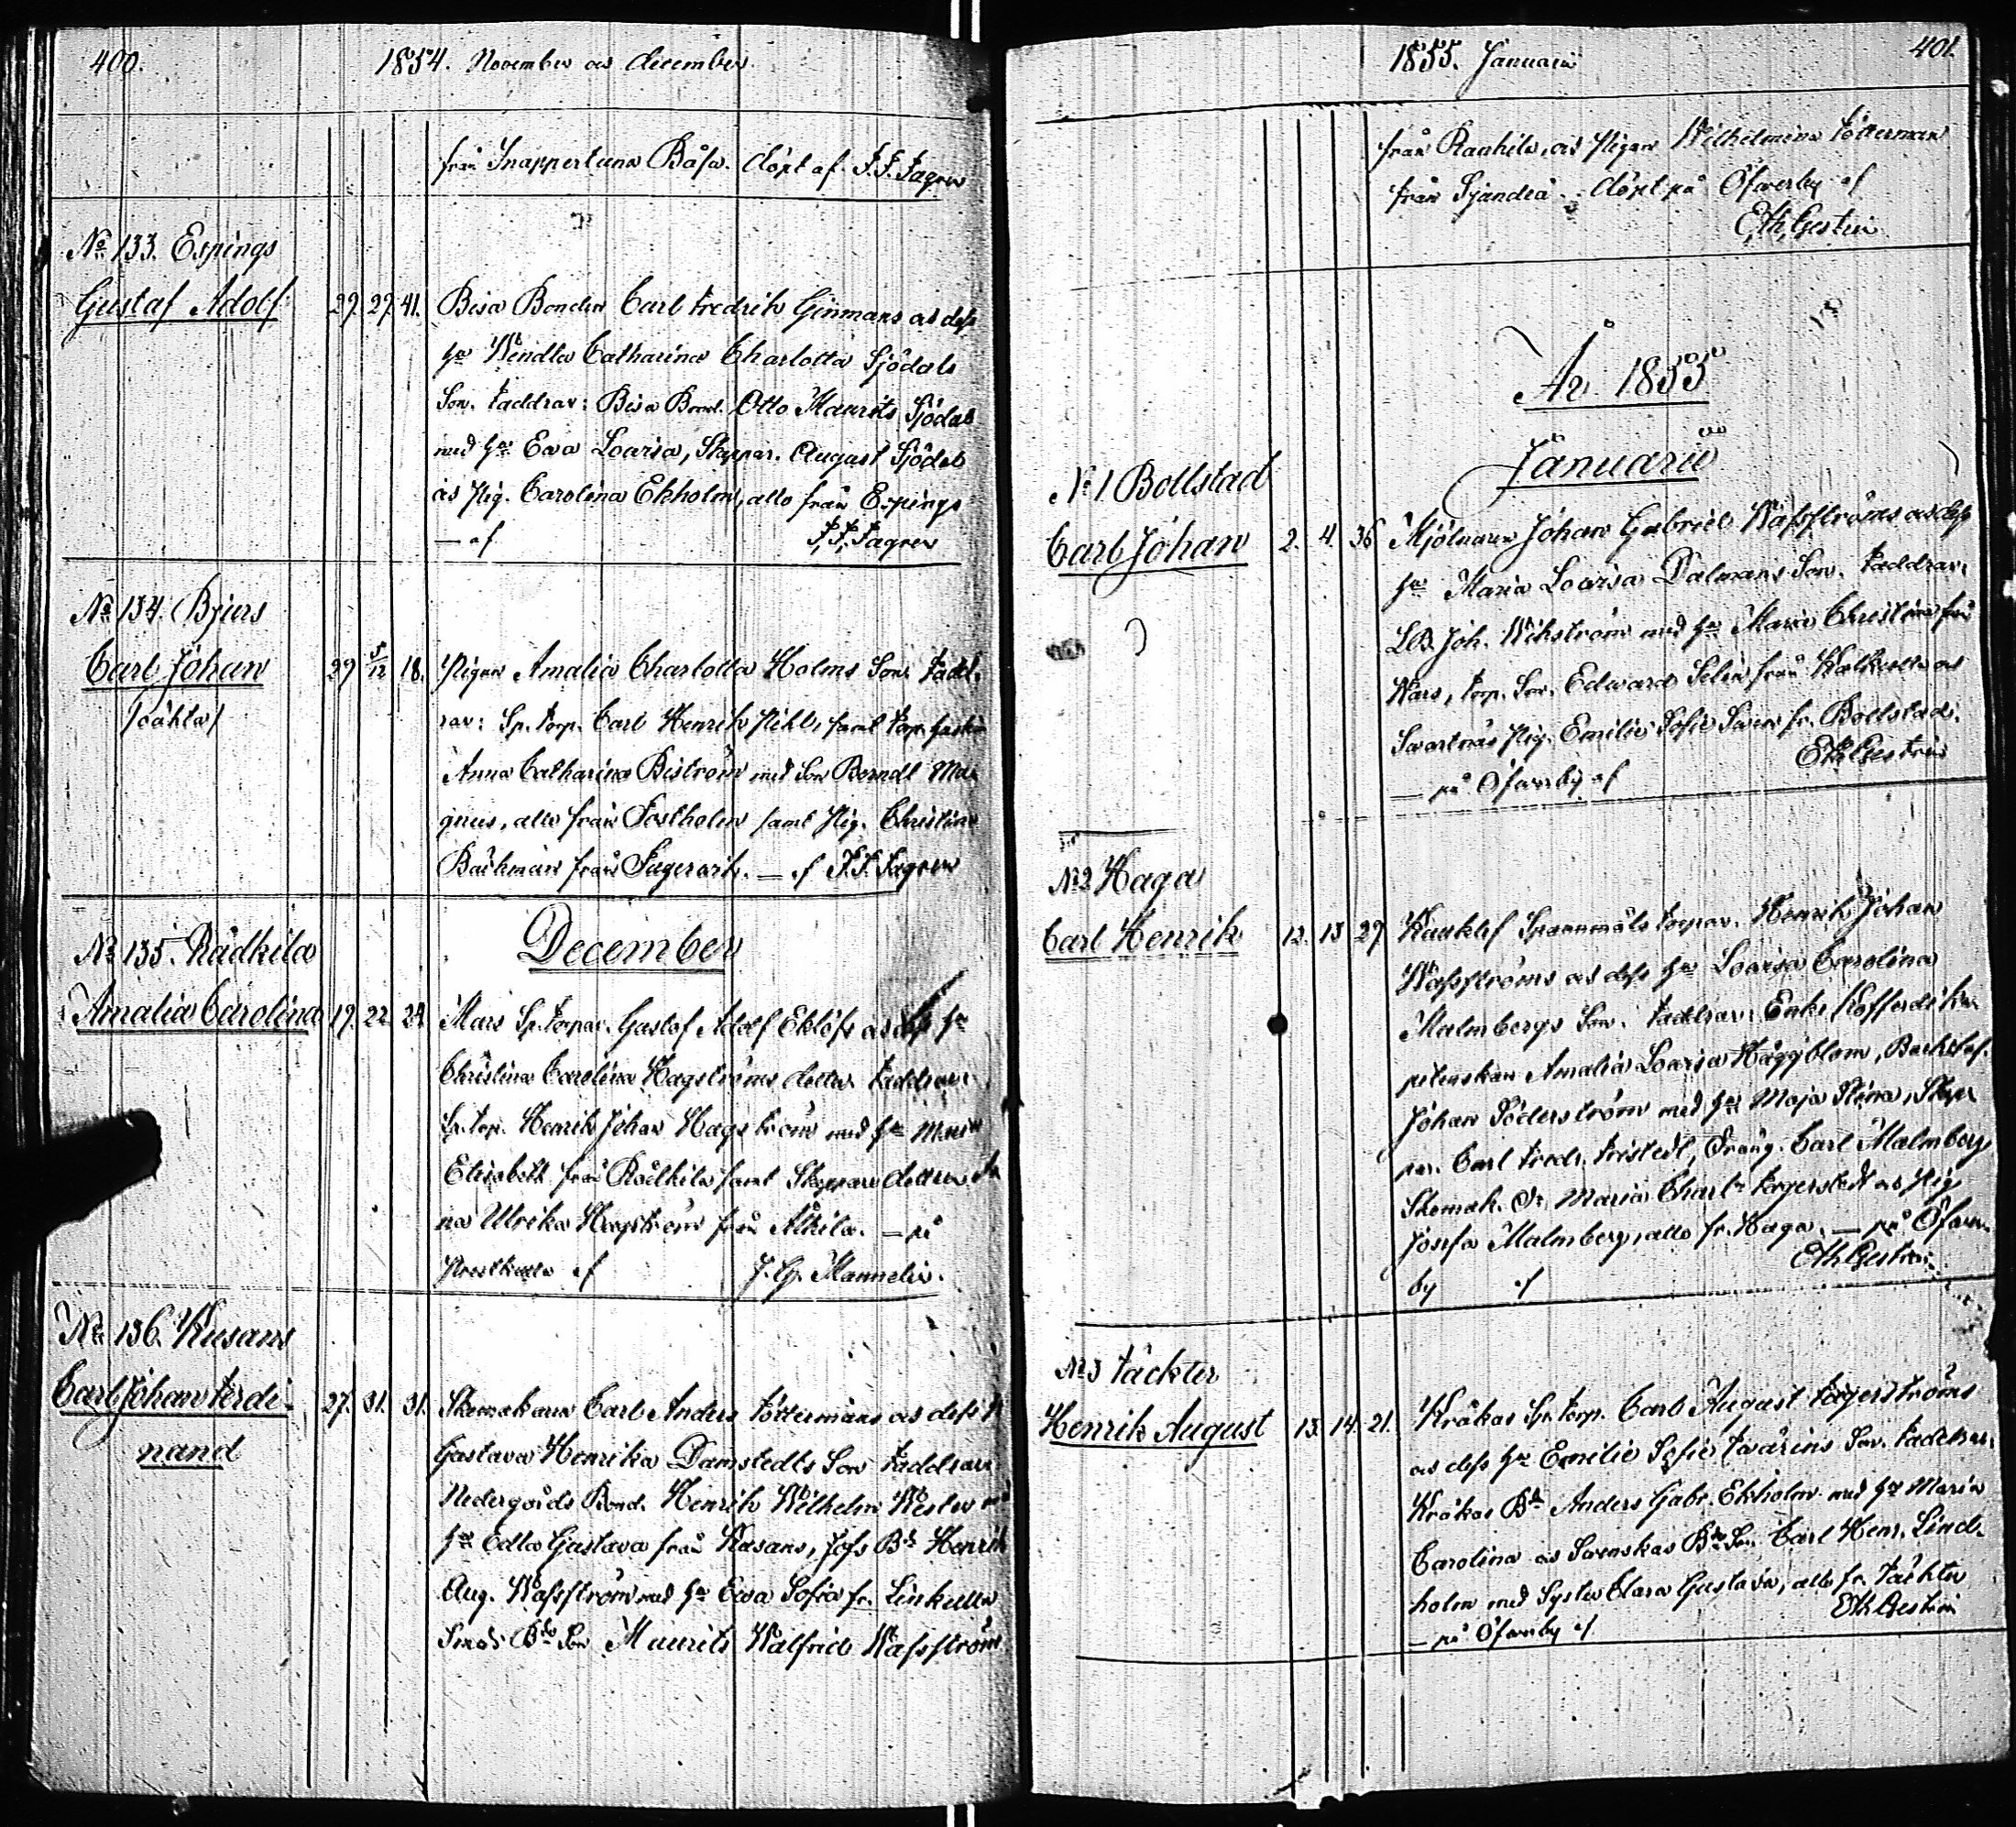 400.
1854. November och december.
från Snappertuna Båsa. döpt af F. F. Fagrén
No 133. Espings
Gustaf Adolf
29. 29. 41.
Bisa Bonden Carl Fredrik Ginmans och dess
hu Wendla Catharina Charlotta Sjödals
Son. Faddrar: Bisa Bond. Otto Maurits Sjödal
med hu Eva Lovisa, Skeppar. August Sjödal
och Pig. Carolina Ekholm, alla från Espings
— af F. F. Fagrén
No 134. Bjers
Carl Johan
/oäkta/
29 5/12 18.
Pigan Amalia Charlotta Holms Son. Fadd-
rar: Sp. torp. Carl Henrik Pihl, samt torp. hustru
Anna Catharina Biström med Son Berndt Ma-
gnus, alla från Fastholm samt Pig. Christina
Backman från Fagervik. — af F. F. Fagrén
December
No 135. Rådkila
Amalia Carolina
19. 22. 24.
Mars Sp. torpar. Gustaf Adolf Eklöfs och dess hu
Christina Carolina Hagströms dotter. Faddrar:
Sp. torp. Henrik Johan Hagström med hu Maria
Elisabeth från Rådkila samt Skeppare dottren An-
na Ulrika Hagström från Älkila. — på
Prestkulla af J. G. Mannelin.
No 136. Kusans
Carl Johan Ferdi-
nand
27. 31. 31.
Skomakaren Carl Anders Töttermans och dess h
Gustava Henrika Damstedts Son Faddrar
Nedergårds Bond. Henrik Wilhelm Wester
hu Edla Gustava från Kusans, Jofs Bd Henrik
Aug. Wassström med hu Eva Sofia fr. Linkulla
Smeds Bd Son Maurits Walfrid Wassström
1855. Januari
401.
från Rankila, och Pigan Wilhelmina Tötterman
från Sjundeå. döpt på Öfverby af
E. Th. Gestrin
År 1855
Januarii
No 1 Bollstad
Carl Johan
2. 4. 36
Mjölnaren Johan Gabriel Wassströms och dess
hu Maria Lovisa Dalmans Son. Faddrar:
LB. Joh. Wikström med hu Maria Christina från
Wars, torp. Son. Edward Selin från Kalkulla och
Svartnäs Pig. Emilie Sofie Saren fr. Bollstad.
— på Öfverby af E Th Gestrin
No 2 Haga
Carl Henrik
12. 13 29
Kauklef Spannmåls torpar. Henrik Johan
Wassströms och dess hu Lovisa Carolina
Malmbergs Son. Faddrar: Enke Kofferdi Ka-
pitenskan Amalia Lovisa Häggblom, Backstuf.
Johan Söderström med hu Maja Stina, Skep-
par. Carl Fredr. Fristedt, Dräng. Carl Malmberg
Skomak. Dr. Maria Charl. Fagerstedt och Pig
Josefa Malmberg, alla fr. Haga. — på Öfver-
by af E Th Gestrin
No 3 Täckter
Henrik August
13. 14. 21.
Kråkas Sp. torp. Carl August Fagerströms
och dess hu Emilie Sofie Tavarins Son. Faddrar:
Kråkas Bd Anders Gabr. Ekholm med hu Maria
Carolina och Svenskas Bd Son. Carl Henr. Lind-
holm med Syster Clara Gustava, alla fr. Täckter
— på Öfverby af E Th Gestrin